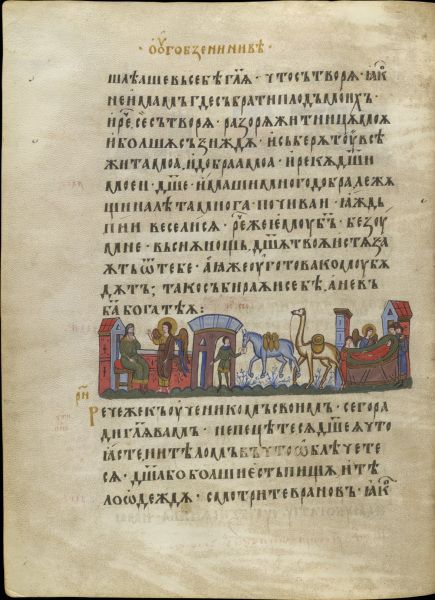 оугобзенинивѣ
шлѣашевьсебѣглѧ· чтосътворѧ· ꙗко
неималмъгдесъбратиплодъмоихъ·
ирече, сесътворѧ· разорѧжитницѧмоѧ
иболшѧсъзижде· исьберѧтоувсѣ
житамоа, идобраамоа· ирекѫдши
моеи· дше· имашимногодобра, лежѧ
щинал҄ѣтамнога· почиваи· ꙗждь
пии веселисѧ· речежеемоубъ· безоу
мне· въсиѫнощь дшѫтвоѫистѧза
ѫтьѿтебе· аꙗжеоуготовакомоубѫ
дѫть; такосъбираѧисебѣ, аневъ
бабогатѣѧ:
Речежекъоученикомъсвоимъ· сегора
диглѧвамъ· непецѣтесѧдшеѫчто
ꙗсте, нителомъвъчтоѡблѣчете
сѧ· дшабоболшиестьпищѧ, итѣ
лоѡдеждѧ· смотритевранове· ꙗко